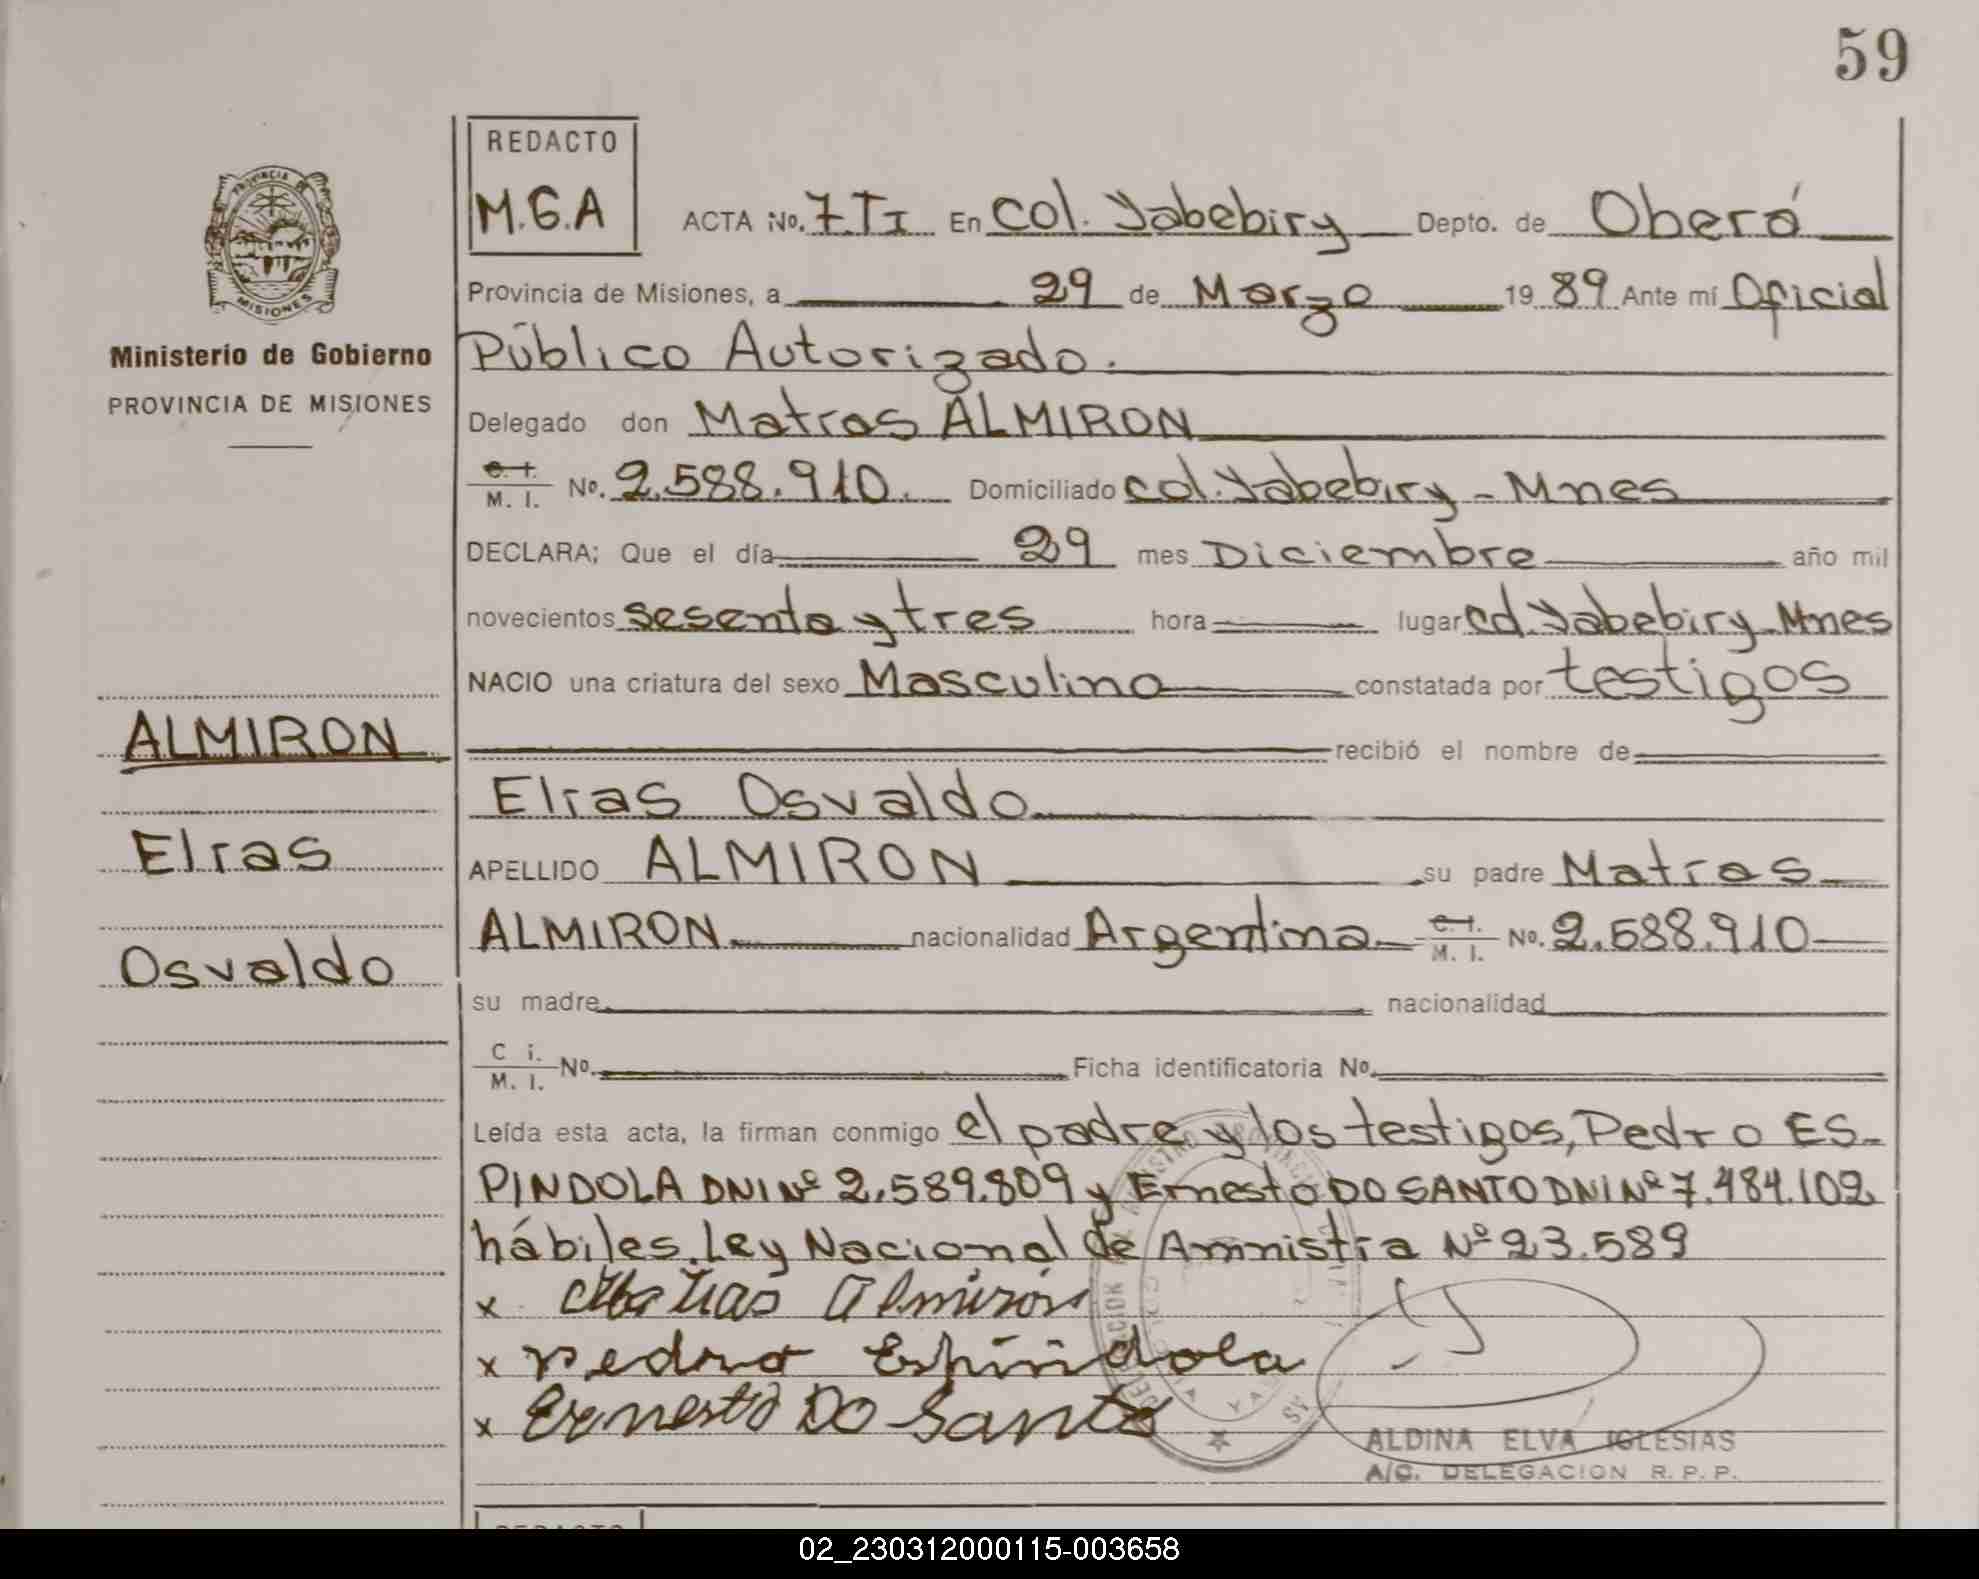 59
REDACTO
M.G.A
ACTA No. 7.TI En Col. Yabebiry Depto. de Oberá
Provincia de Misiones, a 29 de Marzo 19 89 Ante mí Oficial
Público Autorizado.
Delegado don Matías ALMIRON
C. I. M. I. No. 2.588.910. Domiciliado Col. Yabebiry - Mnes
DECLARA; Que el día 29 mes Diciembre año mil
novecientos sesenta y tres hora lugar Col. Yabebiry Mnes
NACIO una criatura del sexo Masculino constatada por testigos
recibió el nombre de
Elías Osvaldo
APELLIDO ALMIRON su padre Matías
ALMIRON nacionalidad Argentina C. I. M. I. No. 2.588.910
su madre nacionalidad
C i. M. I. No. Ficha identificatoria No.
Leída esta acta, la firman conmigo el padre y los testigos, Pedro ES-
PINDOLA DNI Nº 2.589.809 y Ernesto DO SANTO DNI Nº 7.484.102
hábiles. Ley Nacional de Amnistía Nº 23.589
x Matias Almirón
x Pedro Espíndola
x Ernesto Do Santo
ALDINA ELVA IGLESIAS
A/C. DELEGACION R. P. P.
PROVINCIA DE
MISIONES
Ministerio de Gobierno
PROVINCIA DE MISIONES
ALMIRON
Elías
Osvaldo
REDACTO
02_230312000115-003658